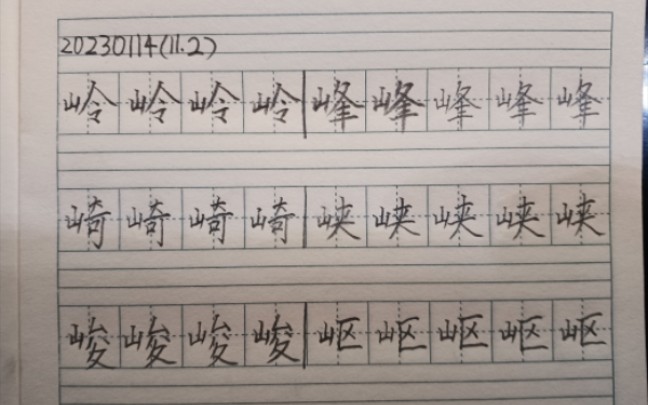 20230114(11.2)
岭岭岭岭峰峰峰峰峰
崎崎崎崎峡峡峡峡峡
峻峻峻峻岖岖岖岖岖